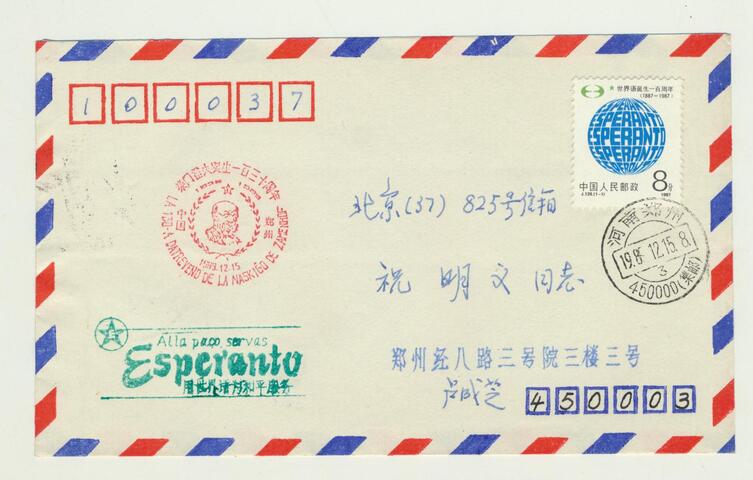 100037
世界语诞生一百周年
(1887-1987)
ESPERANTO
ESPERANTO
ESPERANTO
ESPERANTO
中国人民邮政
8分
J.139.(1-1)
1987
柴门霍夫诞生一百三十周年
中国
郑州
1989.12.15
LA 130-A DATREVENO DE LA NASKIĜO DE ZAMENHOF
北京(37) 825号信箱
河南郑州
1989.12.15.8
3
450000(集邮)
祝明义同志
Alla paco servas
Esperanto
用世界语为和平服务
郑州经八路三号院三楼三号
吕成芝
450003